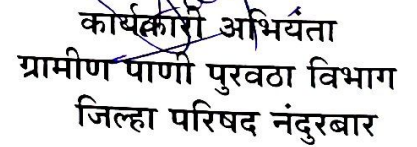 कार्यकारी अभियंता
ग्रामीण पाणी पुरवठा विभाग
जिल्हा परिषद नंदुरबार